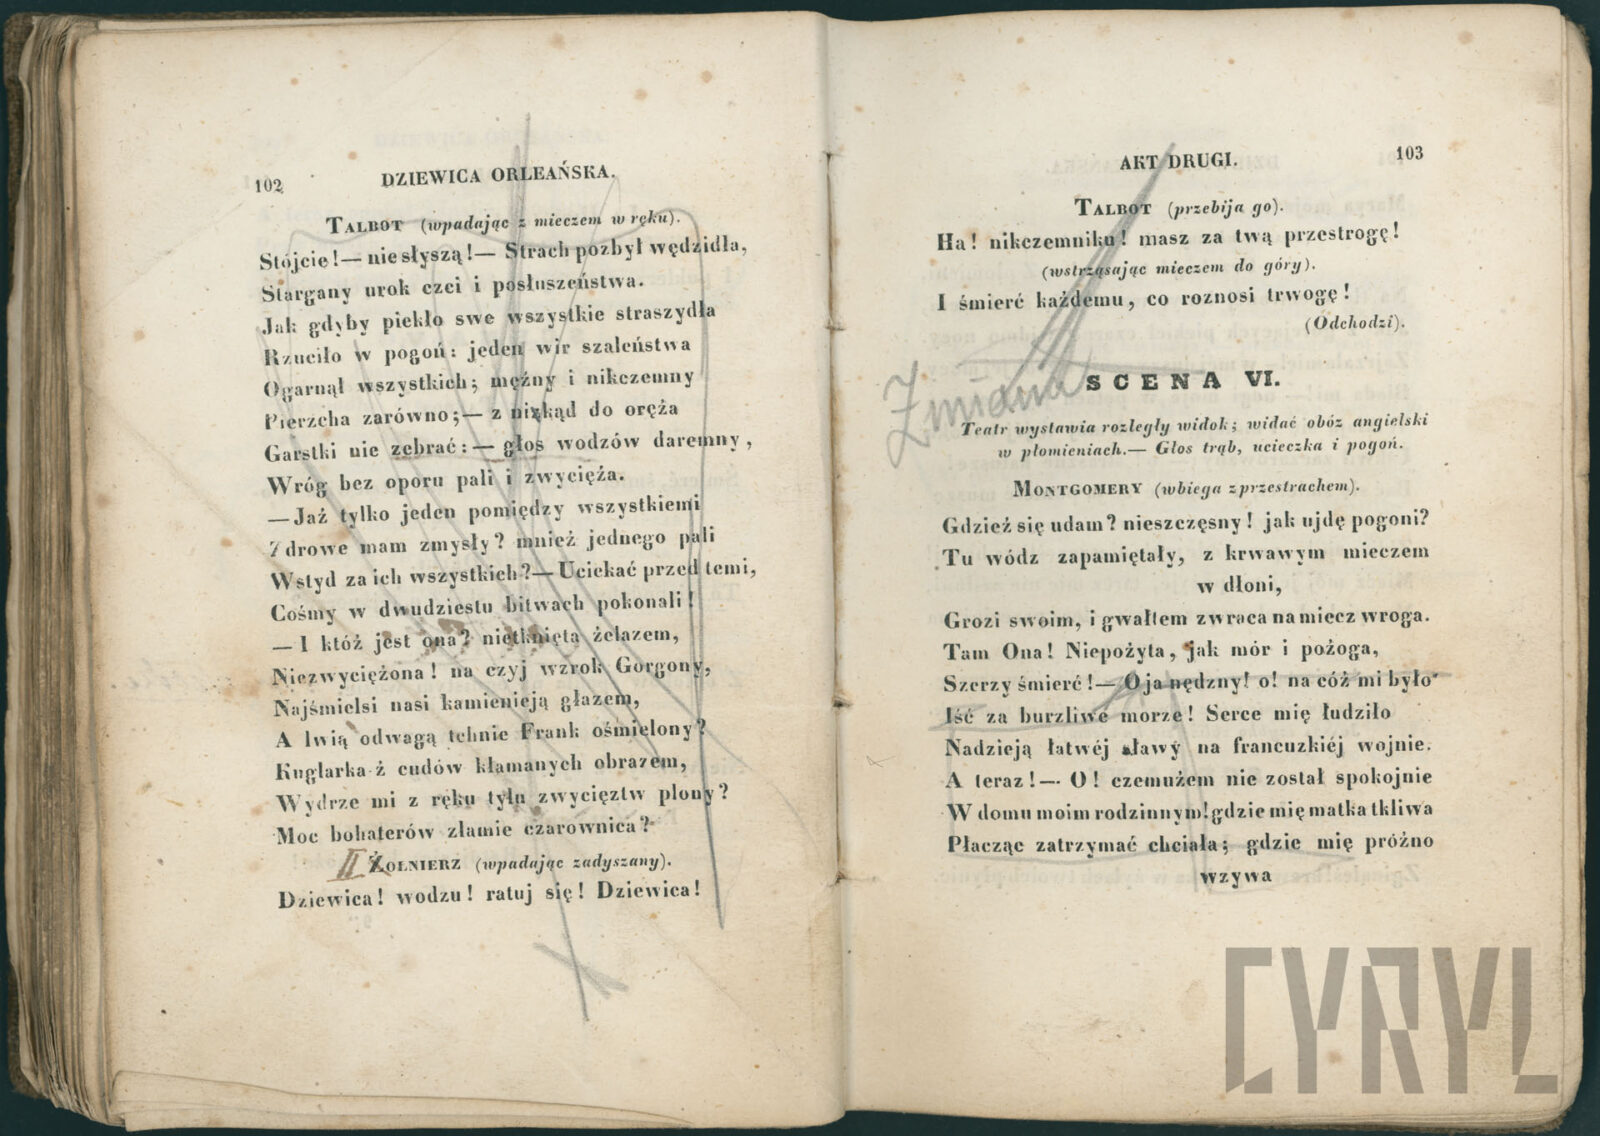 102 DZIEWICA ORLEAŃSKA.
TALBOT (wpadając z mieczem w ręku).
Stójcie!— nie słyszą!— Strach pozbył wędzidła,
Stargany urok czci i posłuszeństwa.
Jak gdyby piekło swe wszystkie straszydła
Rzuciło w pogoń: jeden wir szaleństwa
Ogarnął wszystkich; mężny i nikczemny
Pierzcha zarówno;— z nizkąd do oręża
Garstki nie zebrać:— głos wodzów daremny,
Wróg bez oporu pali i zwycięża.
—Jaż tylko jeden pomiędzy wszystkiemi
Zdrowe mam zmysły? mnież jednego pali
Wstyd za ich wszystkich?— Uciekać przed temi,
Cośmy w dwudziestu bitwach pokonali!
—I któż jest ona? nietknięta żelazem,
Niezwyciężona! na czyj wzrok Gorgony,
Najśmielsi nasi kamienieją głazem,
A lwią odwagą tchnie Frank ośmielony?
Kuglarka z cudów kłamanych obrazem,
Wydrze mi z ręku tylu zwycięztw plony?
Moc bohaterów złamie czarownica?
II ŻOŁNIERZ (wpadając zadyszany).
Dziewica! wodzu! ratuj się! Dziewica!
AKT DRUGI. 103
TALBOT (przebija go).
Ha! nikczemniku! masz za twą przestrogę!
(wstrząsając mieczem do góry).
I śmierć każdemu, co roznosi trwogę!
(Odchodzi).
Zmiana
SCENA VI.
Teatr wystawia rozległy widok; widać obóz angielski
w płomieniach.— Głos trąb, ucieczka i pogoń.
MONTGOMERY (wbiega z przestrachem).
Gdzież się udam? nieszczęsny! jak ujdę pogoni?
Tu wódz zapamiętały, z krwawym mieczem
w dłoni,
Grozi swoim, i gwałtem zwraca na miecz wroga.
Tam Ona! Niepożyta, jak mór i pożoga,
Szerzy śmierć!— O ja nędzny! o! na cóż mi było
Iść za burzliwe morze! Serce mię łudziło
Nadzieją łatwéj sławy na francuzkiéj wojnie.
A teraz!— O! czemużem nie został spokojnie
W domu moim rodzinnym! gdzie mię matka tkliwa
Płacząc zatrzymać chciała; gdzie mię próżno
wzywa
CYRYL